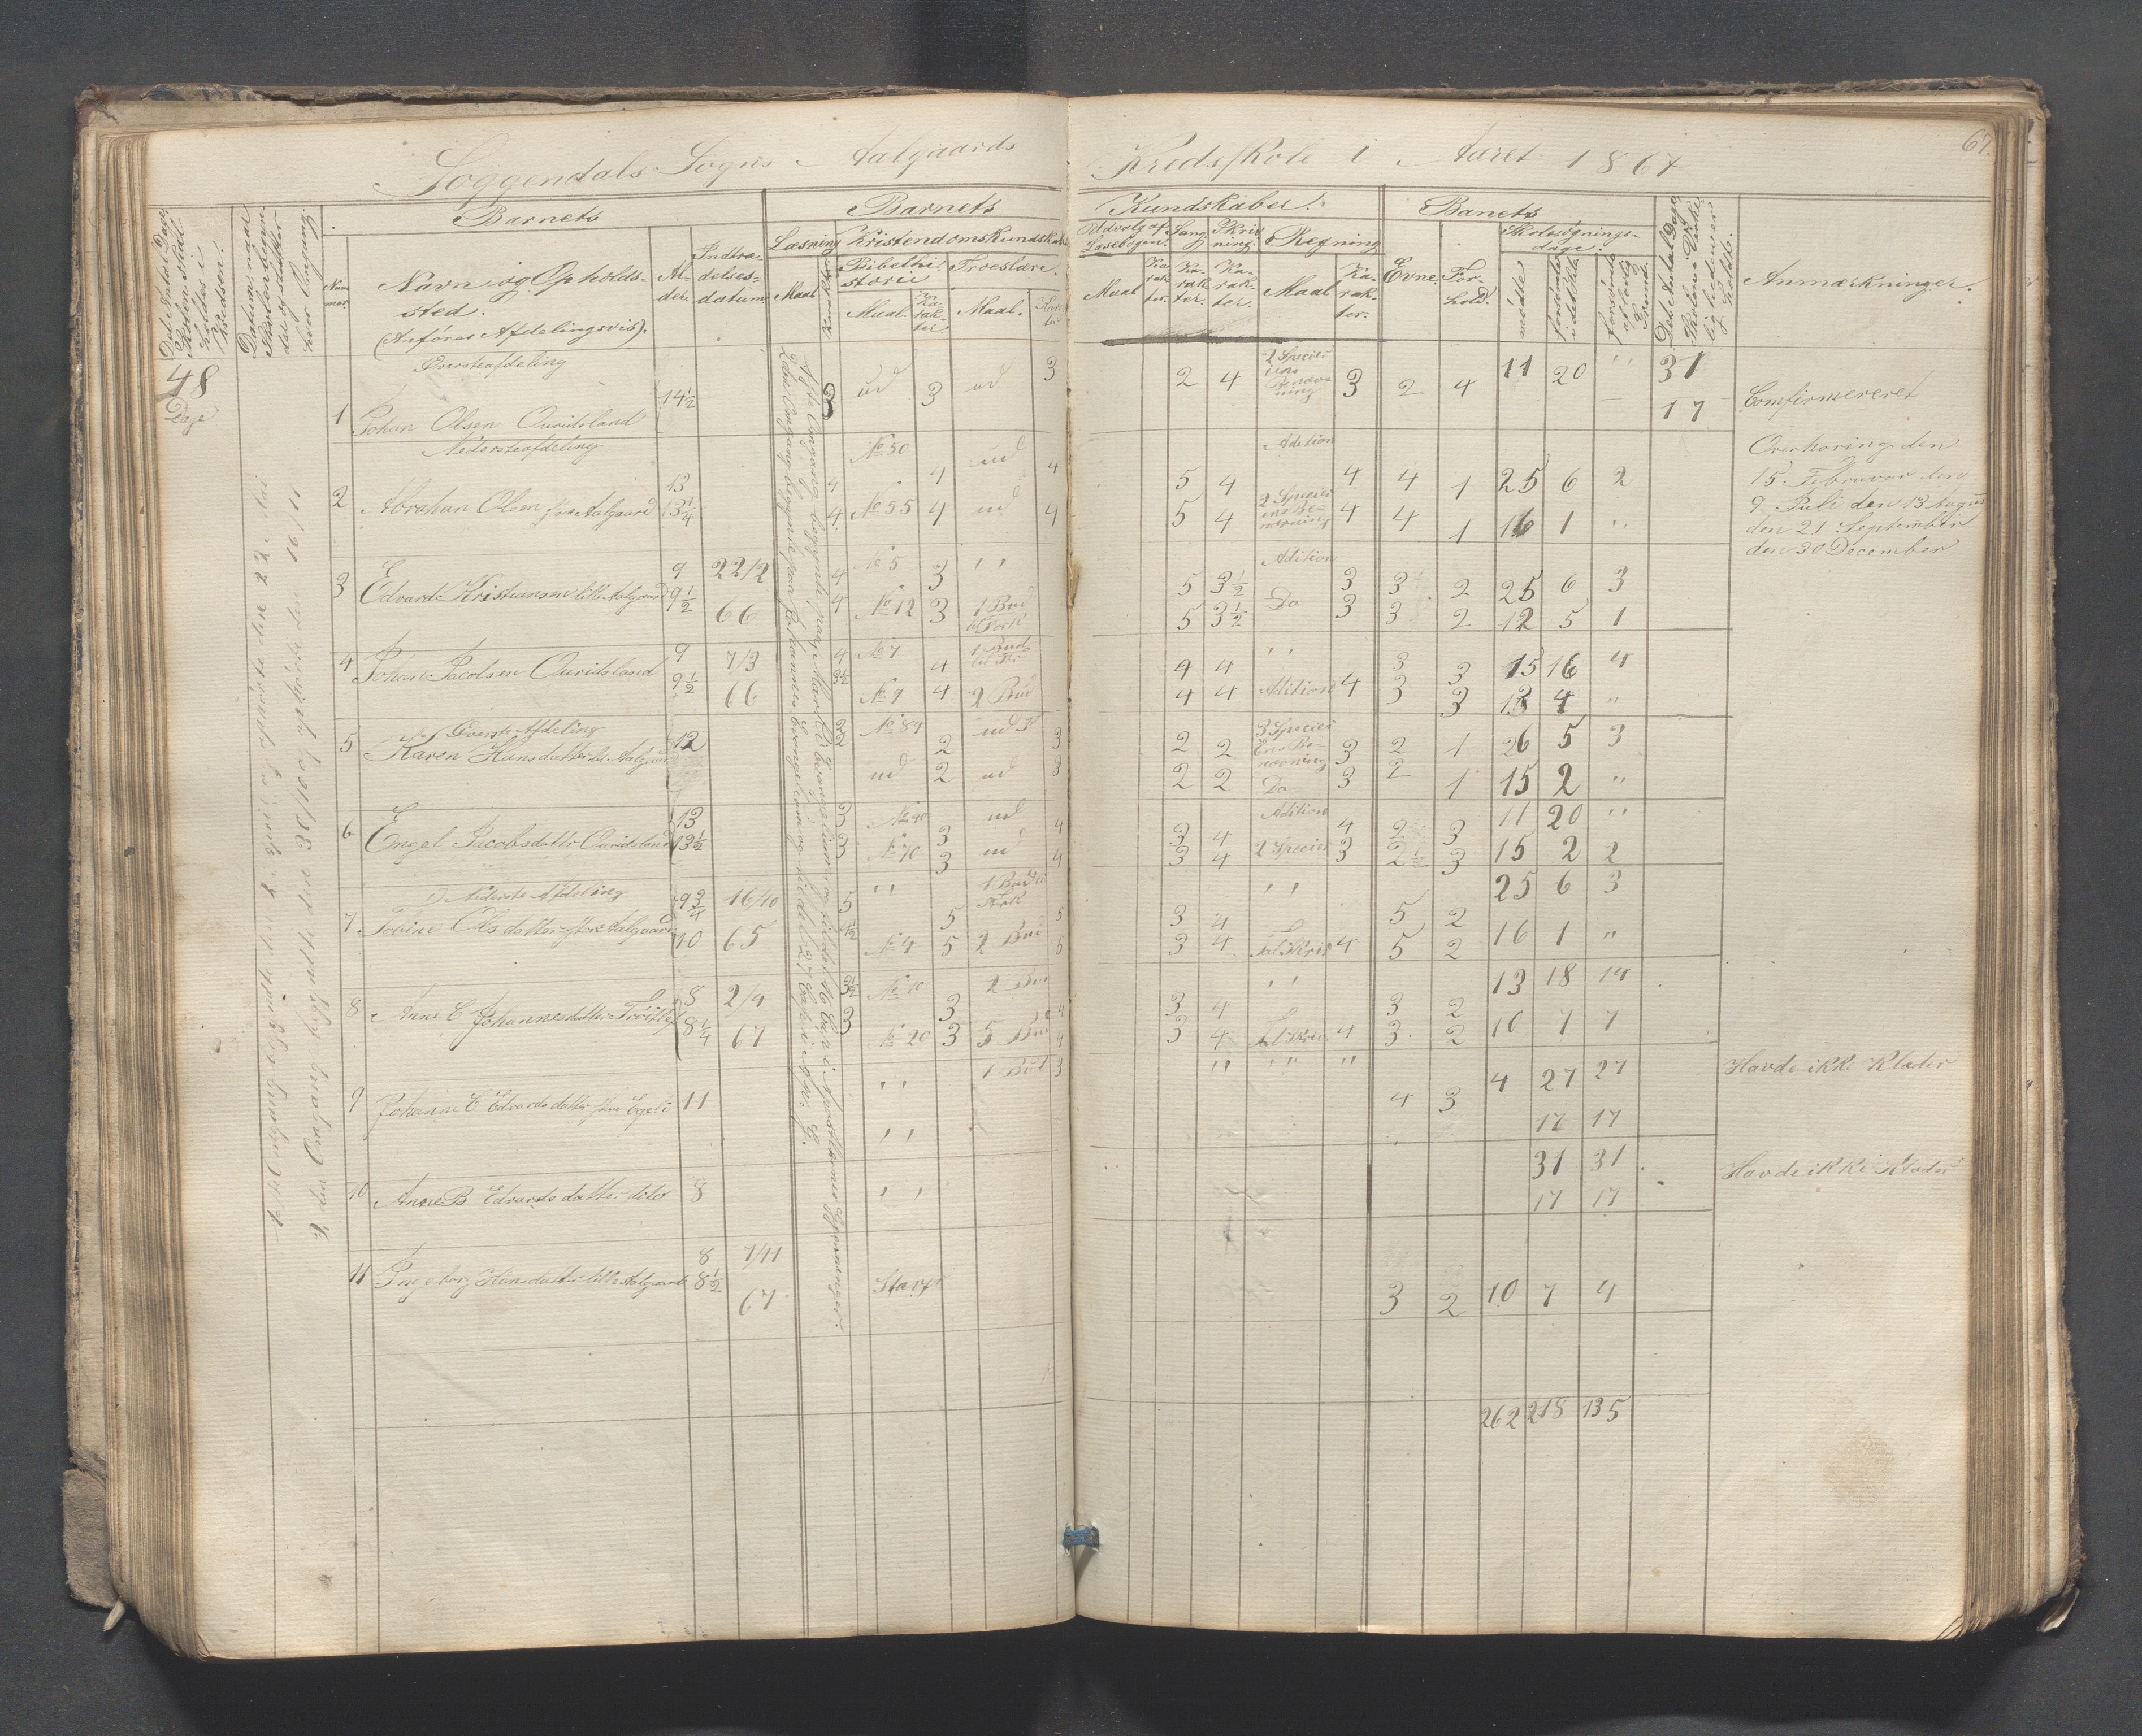 Soggendals Sogns Aalgaards Kredsskole i Aaret 1867
67.
Barnets
Barnets
Kundskaber.
Banets
Det Antal Dage
Skolen skal
holdes i
Kredsen.
Datum naar
Skolen begyn-
der og slutter
hver Omgang.
Num-
mer.
Navn og Opholds-
sted.
(Anføres Afdelingsvis).
Al-
der.
Indtræ-
delses-
datum
Læsning
Maal
Kristendomskundskab
Bibelhi-
storie
Maal.
Ka-
rak-
ter.
Troeslære.
Maal.
Udvalg af
Læsebogen.
Maal
Ka-
rak-
ter.
Sang.
Ka-
rak-
ter.
Skriv-
ning.
Ka-
rak-
ter.
Regning
Maal
Ka-
rak-
ter.
Evne.
For-
hold.
Skolesøgnings-
dage.
mødte
forsømte
i det Hele
forsømte
af lovlig
Grund.
Det Antal Dage
Skolen i Virke-
ligheden er
holdt.
Anmærkninger.
48
Dage
Øversteafdeling
1 Johan Olsen Øuridsland 14½ 3 ud 3 ud 3
2 4 3 2 4 11 20 " 31
17
Comfirmereret
Nedersteafdeling
2 Abrahan Olsen store Aalgaard 13 4 No 50 4 ud 4
5 4 Adition 4 4 1 25 6 2
13¼ 4 No 55 4 ud 4
5 4 4 4 1 16 1 "
Overhøring den
15 Februar den
9 Juli den 13 August
den 21 September
den 30 December
3 Edvard Kristiansen litle Aalgaard 9 22/2 4 No 5 3 "
5 3½ Adition 3 3 2 25 6 3
9½ 66 4 No 12 3 1 Bud
5 3½ Do 3 3 2 12 5 1
4 Johan Jacobsen Øuridsland 9 7/3 4 No 7 4 1 Bud
4 4 " 3 3 15 16 4
9½ 66 3½ No 9 4 2 Bud
4 4 Adition 4 3 3 13 4 "
Øverste Afdeling
5 Karen Hansdatter litl Aalgaard 12 2 No 89 2 ud 3
2 2 3 Species 3 2 1 26 5 3
2 ud 2 ud 3
2 2 Do 3 2 1 15 2 "
6 Engel Jacobsdatter Øuridsland 13 3 No 40 3 ud 4
3 4 Adition 4 2 3 11 20 "
13½ 3 No 70 3 ud 4
3 4 2 Species 3 2½ 3 15 2 2
Nederste Afdeling
7 Tobine Olsdatter store Aalgaard 9¾ 16/10 5 " 5 1 Bud 5
3 4 " 5 2 25 6 3
10 65 4½ No 4 5 2 Bud 5
3 4 Talskriv 4 5 2 16 1 "
8 Anne E Johannesdatter 8 2/4 3½ No 10 3 2 Bud 4
3 4 " 3 2 13 18 14
8¼ 67 3 No 20 3 5 Bud 4
3 4 Talskriv 4 3 2 10 7 7
9 Johanne E Edvardsdatter store Egeli 11 " 1 Bud 3
" " " 4 3 4 27 27
Havde ikke Klæder
" 17 17
10 Anne B Edvardsdatter ditto 8 "
31 31
17 17
Havde ikke Klæder
11 Ingeborg Hansdatter litle Aalgaard 8 7/11
8½ 67 Stavet
3 2 10 7 4
262 218 135
2den Omgang begyndte den 30/10 og ophørte den 16/11